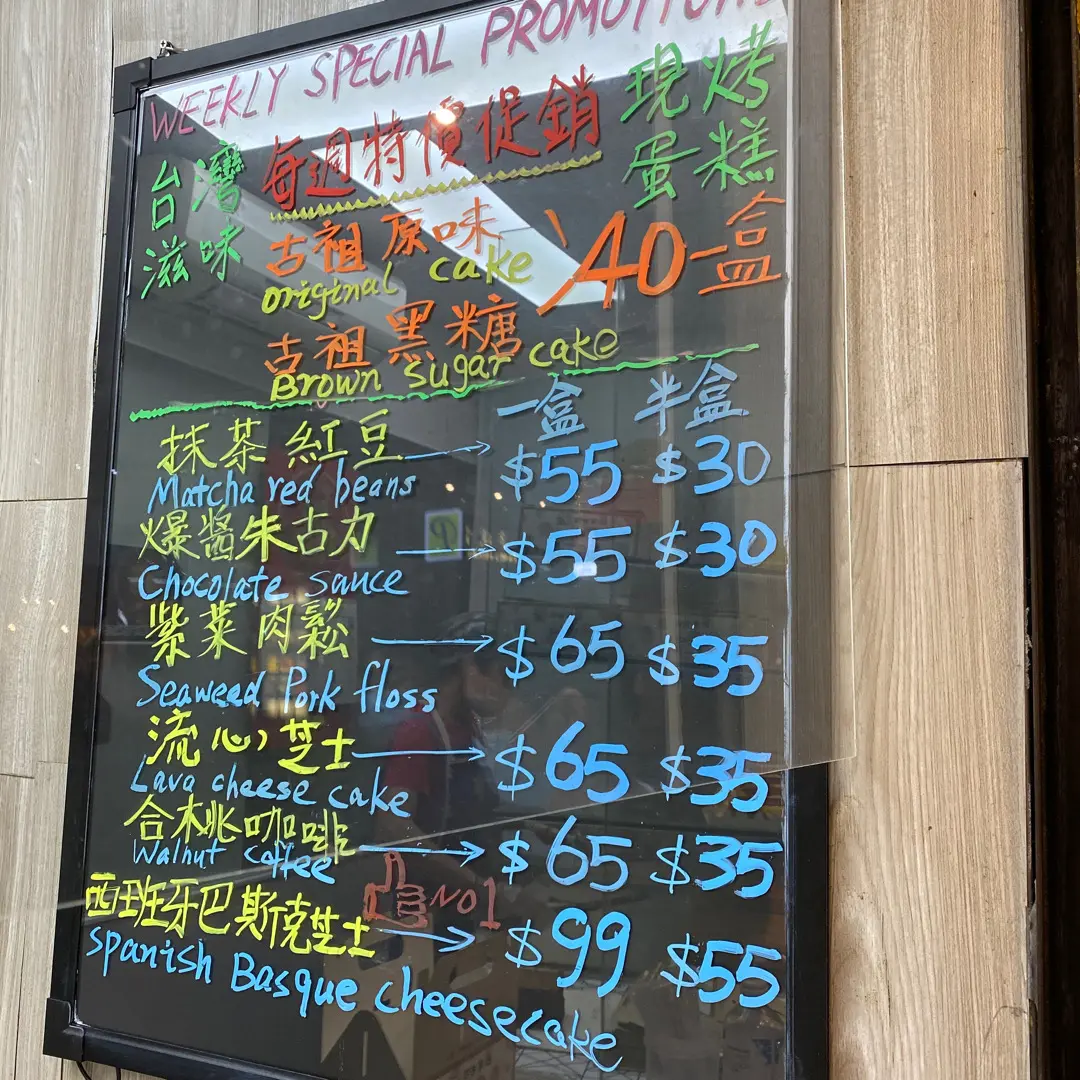 WEEKLY SPECIAL PROMOTION
台灣滋味
每週特價促銷
現烤蛋糕
古祖原味
original cake
40一盒
古祖黑糖
Brown sugar cake
一盒 半盒
抹茶紅豆 $55 $30
Matcha red beans
爆醬朱古力 $55 $30
Chocolate sauce
紫菜肉鬆 $65 $35
Seaweed Pork floss
流心芝士 $65 $35
Lava cheese cake
合桃咖啡 $65 $35
Walnut coffee
NO1
西班牙巴斯克芝士 $99 $55
Spanish Basque cheesecake